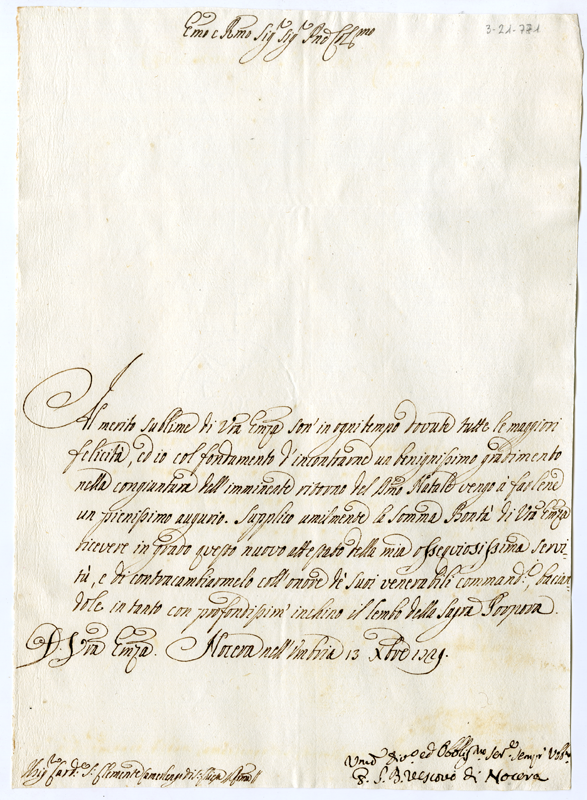 Emo e Rmo Sigr Sigr Pne Colmo
3-21-771
Al merito sublime di Vra Emza son' in ogni tempo dovute tutte le maggiori
felicità, ed io col fondamento d'incontrarne un benignissimo gradimento
nella congiuntura dell'imminente ritorno del Smo Natale vengo à farlene
un pienissimo augurio. Supplico umilmente la somma Bontà di Vra Emza
ricevere in grado questo nuovo attestato della mia ossequiosissima servi-
tù, e di contracambiarmelo coll'onore de suoi venerabili command.i, bacian-
dole in tanto con profondissim' inchino il lembo della Sagra Porpora.
D. Vra Emza. Nocera nell'Umbria 13 Xbre 1721.
Umo Divo ed Obblmo Serv
Vescovo di Nocera
Sig Card. S. Clemente